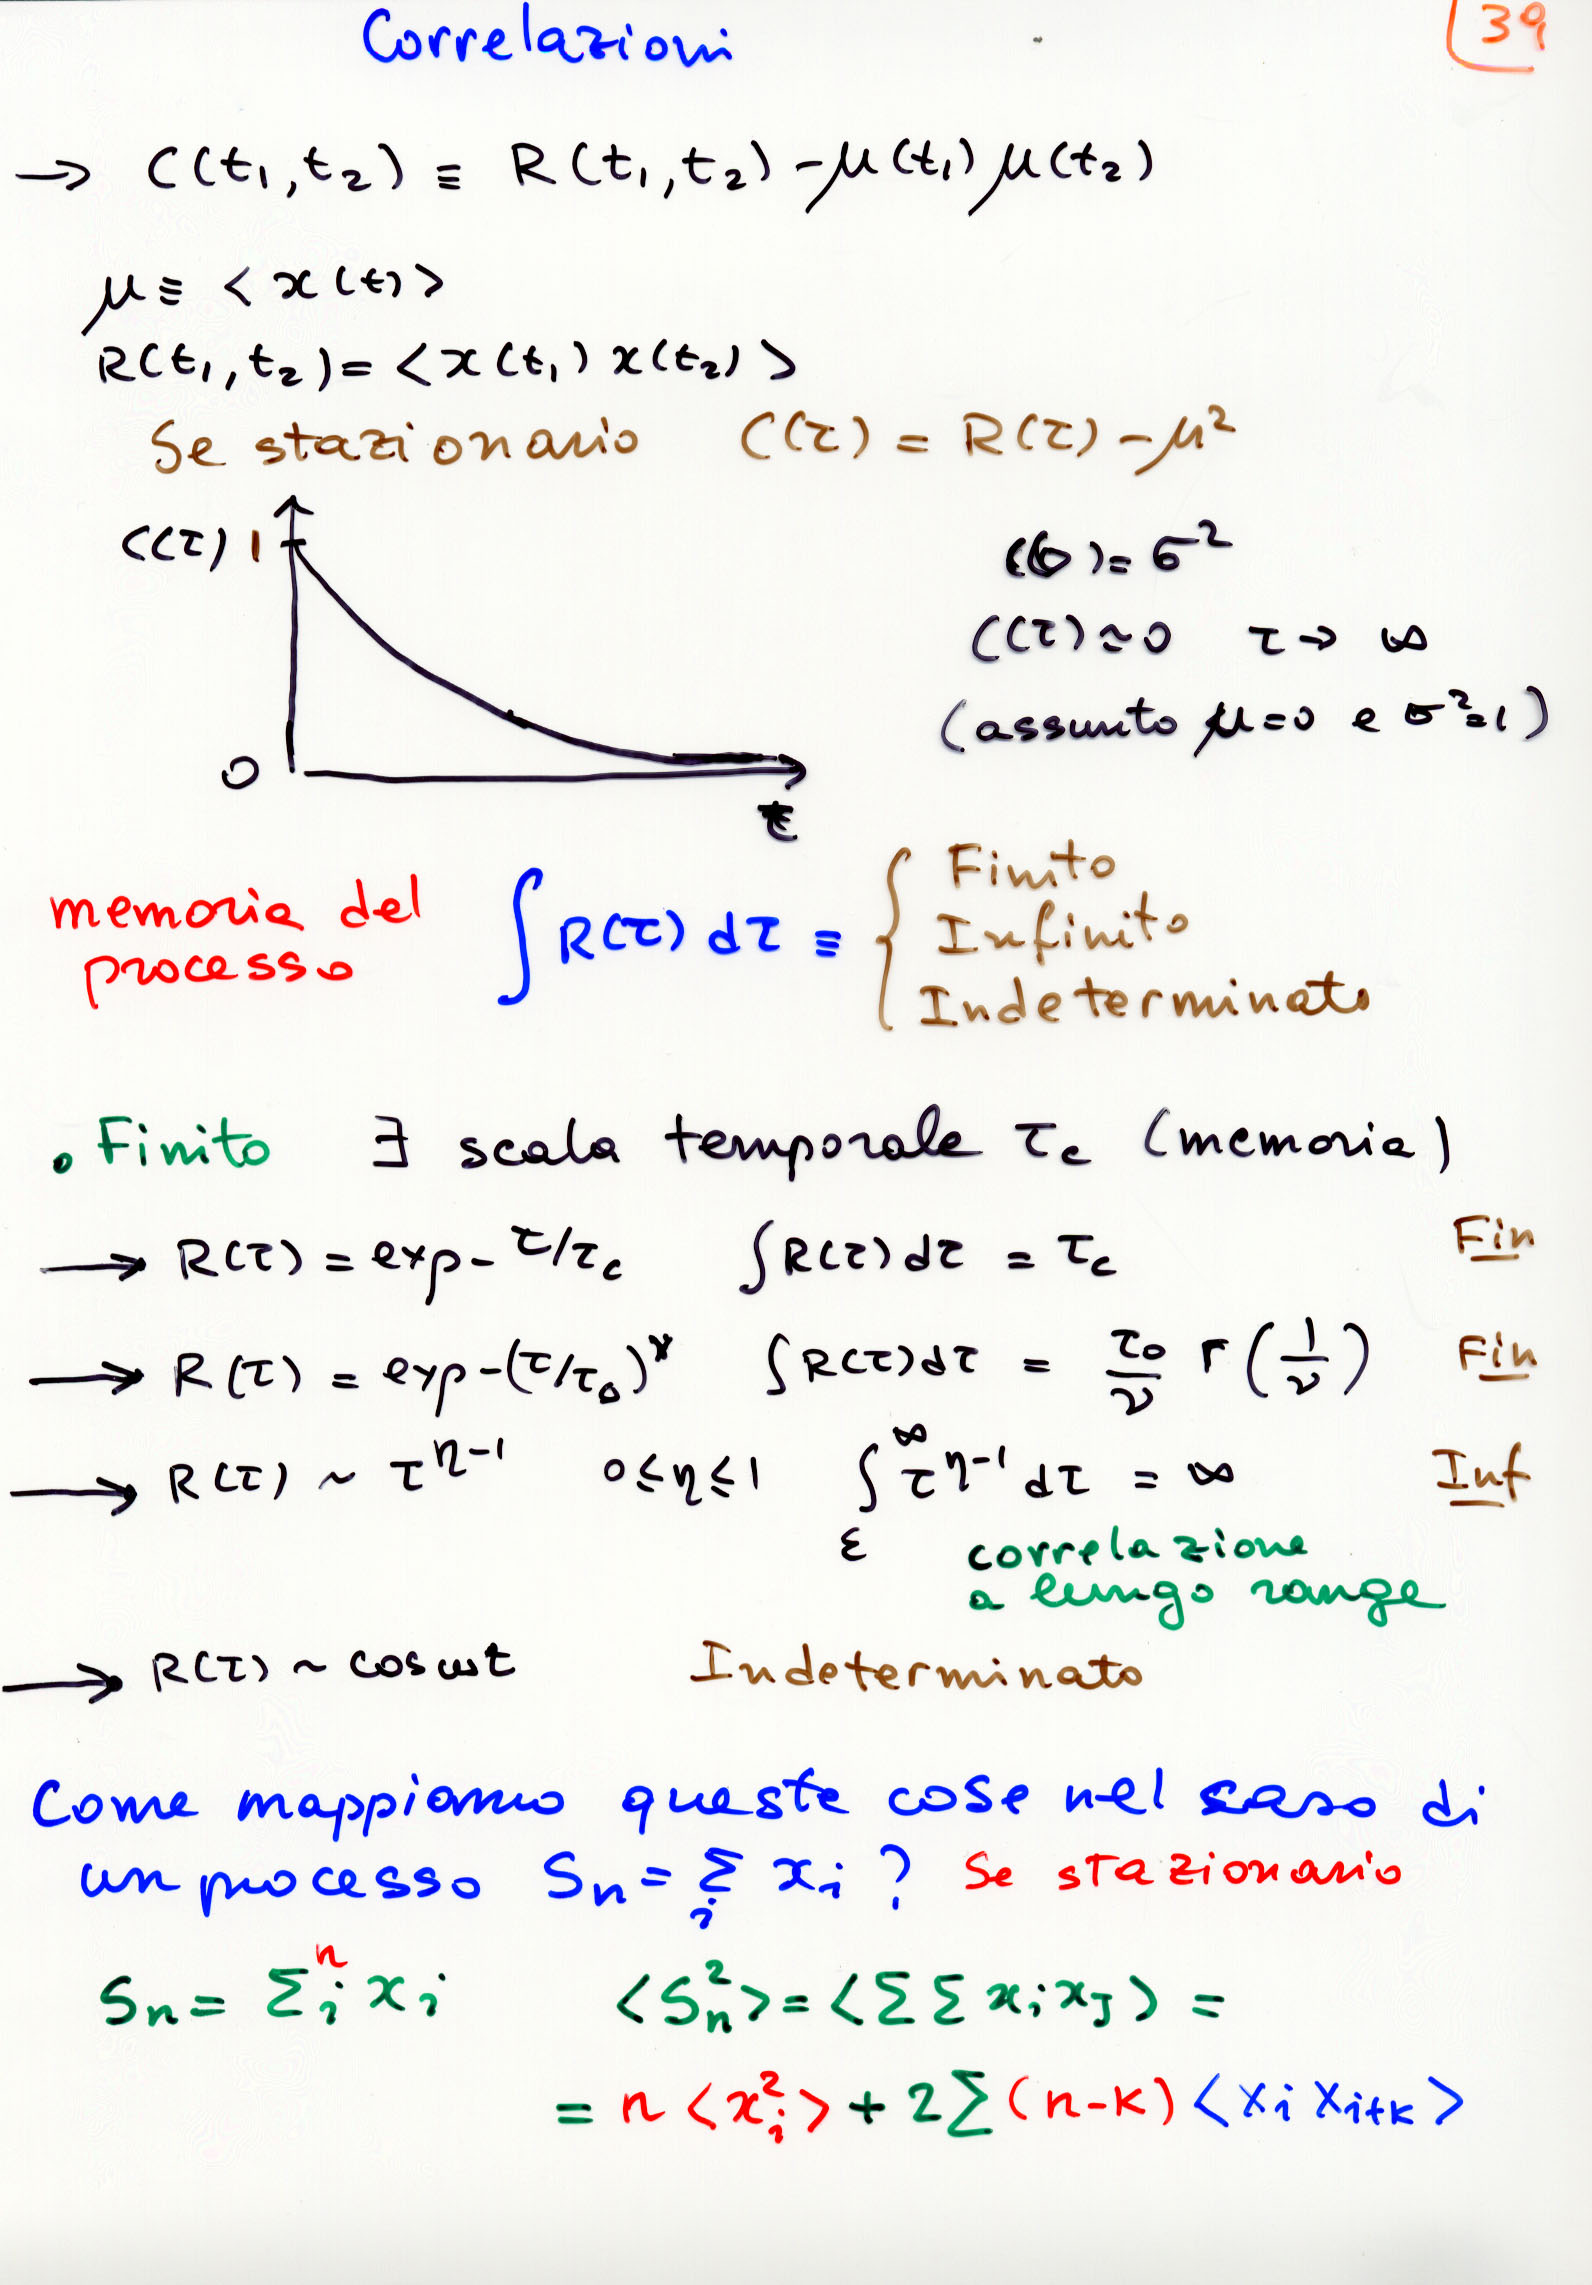 Correlazioni
39
→ C(t₁,t₂) ≡ R(t₁,t₂) - μ(t₁) μ(t₂)
μ ≡ <x(t)>
R(t₁,t₂) = <x(t₁) x(t₂)>
Se stazionario C(τ) = R(τ) - μ²
C(τ) 1
C(0) = σ²
C(τ) ≃ 0 τ → ∞
(assunto μ=0 e σ²=1)
0
τ
memoria del processo ∫R(τ) dτ ≡ { Finito
Infinito
Indeterminato
• Finito ∃ scala temporale τc (memoria)
→ R(τ) = exp - τ/τc ∫R(τ)dτ = τc Fin
→ R(τ) = exp -(τ/τ₀)^ν ∫R(τ)dτ = τ₀/ν Γ(1/ν) Fin
→ R(τ) ~ τ^(η-1) 0≤η≤1 ∫_ε^∞ τ^(η-1) dτ = ∞ Inf
correlazione
a lungo range
→ R(τ) ~ cos ωt Indeterminato
Come mappiamo queste cose nel caso di
un processo Sn = Σ_i x_i ? Se stazionario
Sn = Σ_i^n x_i <Sn²> = <Σ Σ x_i x_J> =
= n <x_i²> + 2Σ (n-k) <x_i x_{i+k}>